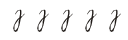 𝒥 𝒥 𝒥 𝒥 𝒥